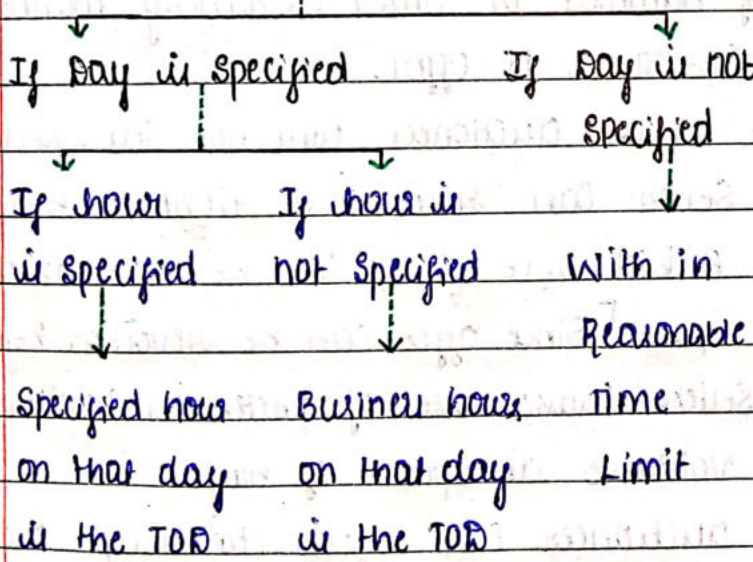 If Day is specified
If Day is not
specified
If hour
is specified
If hour is
not specified
With in
Reasonable
Time
Limit
Specified hour
on that day
is the TOD
Business hours
on that day
is the TOD